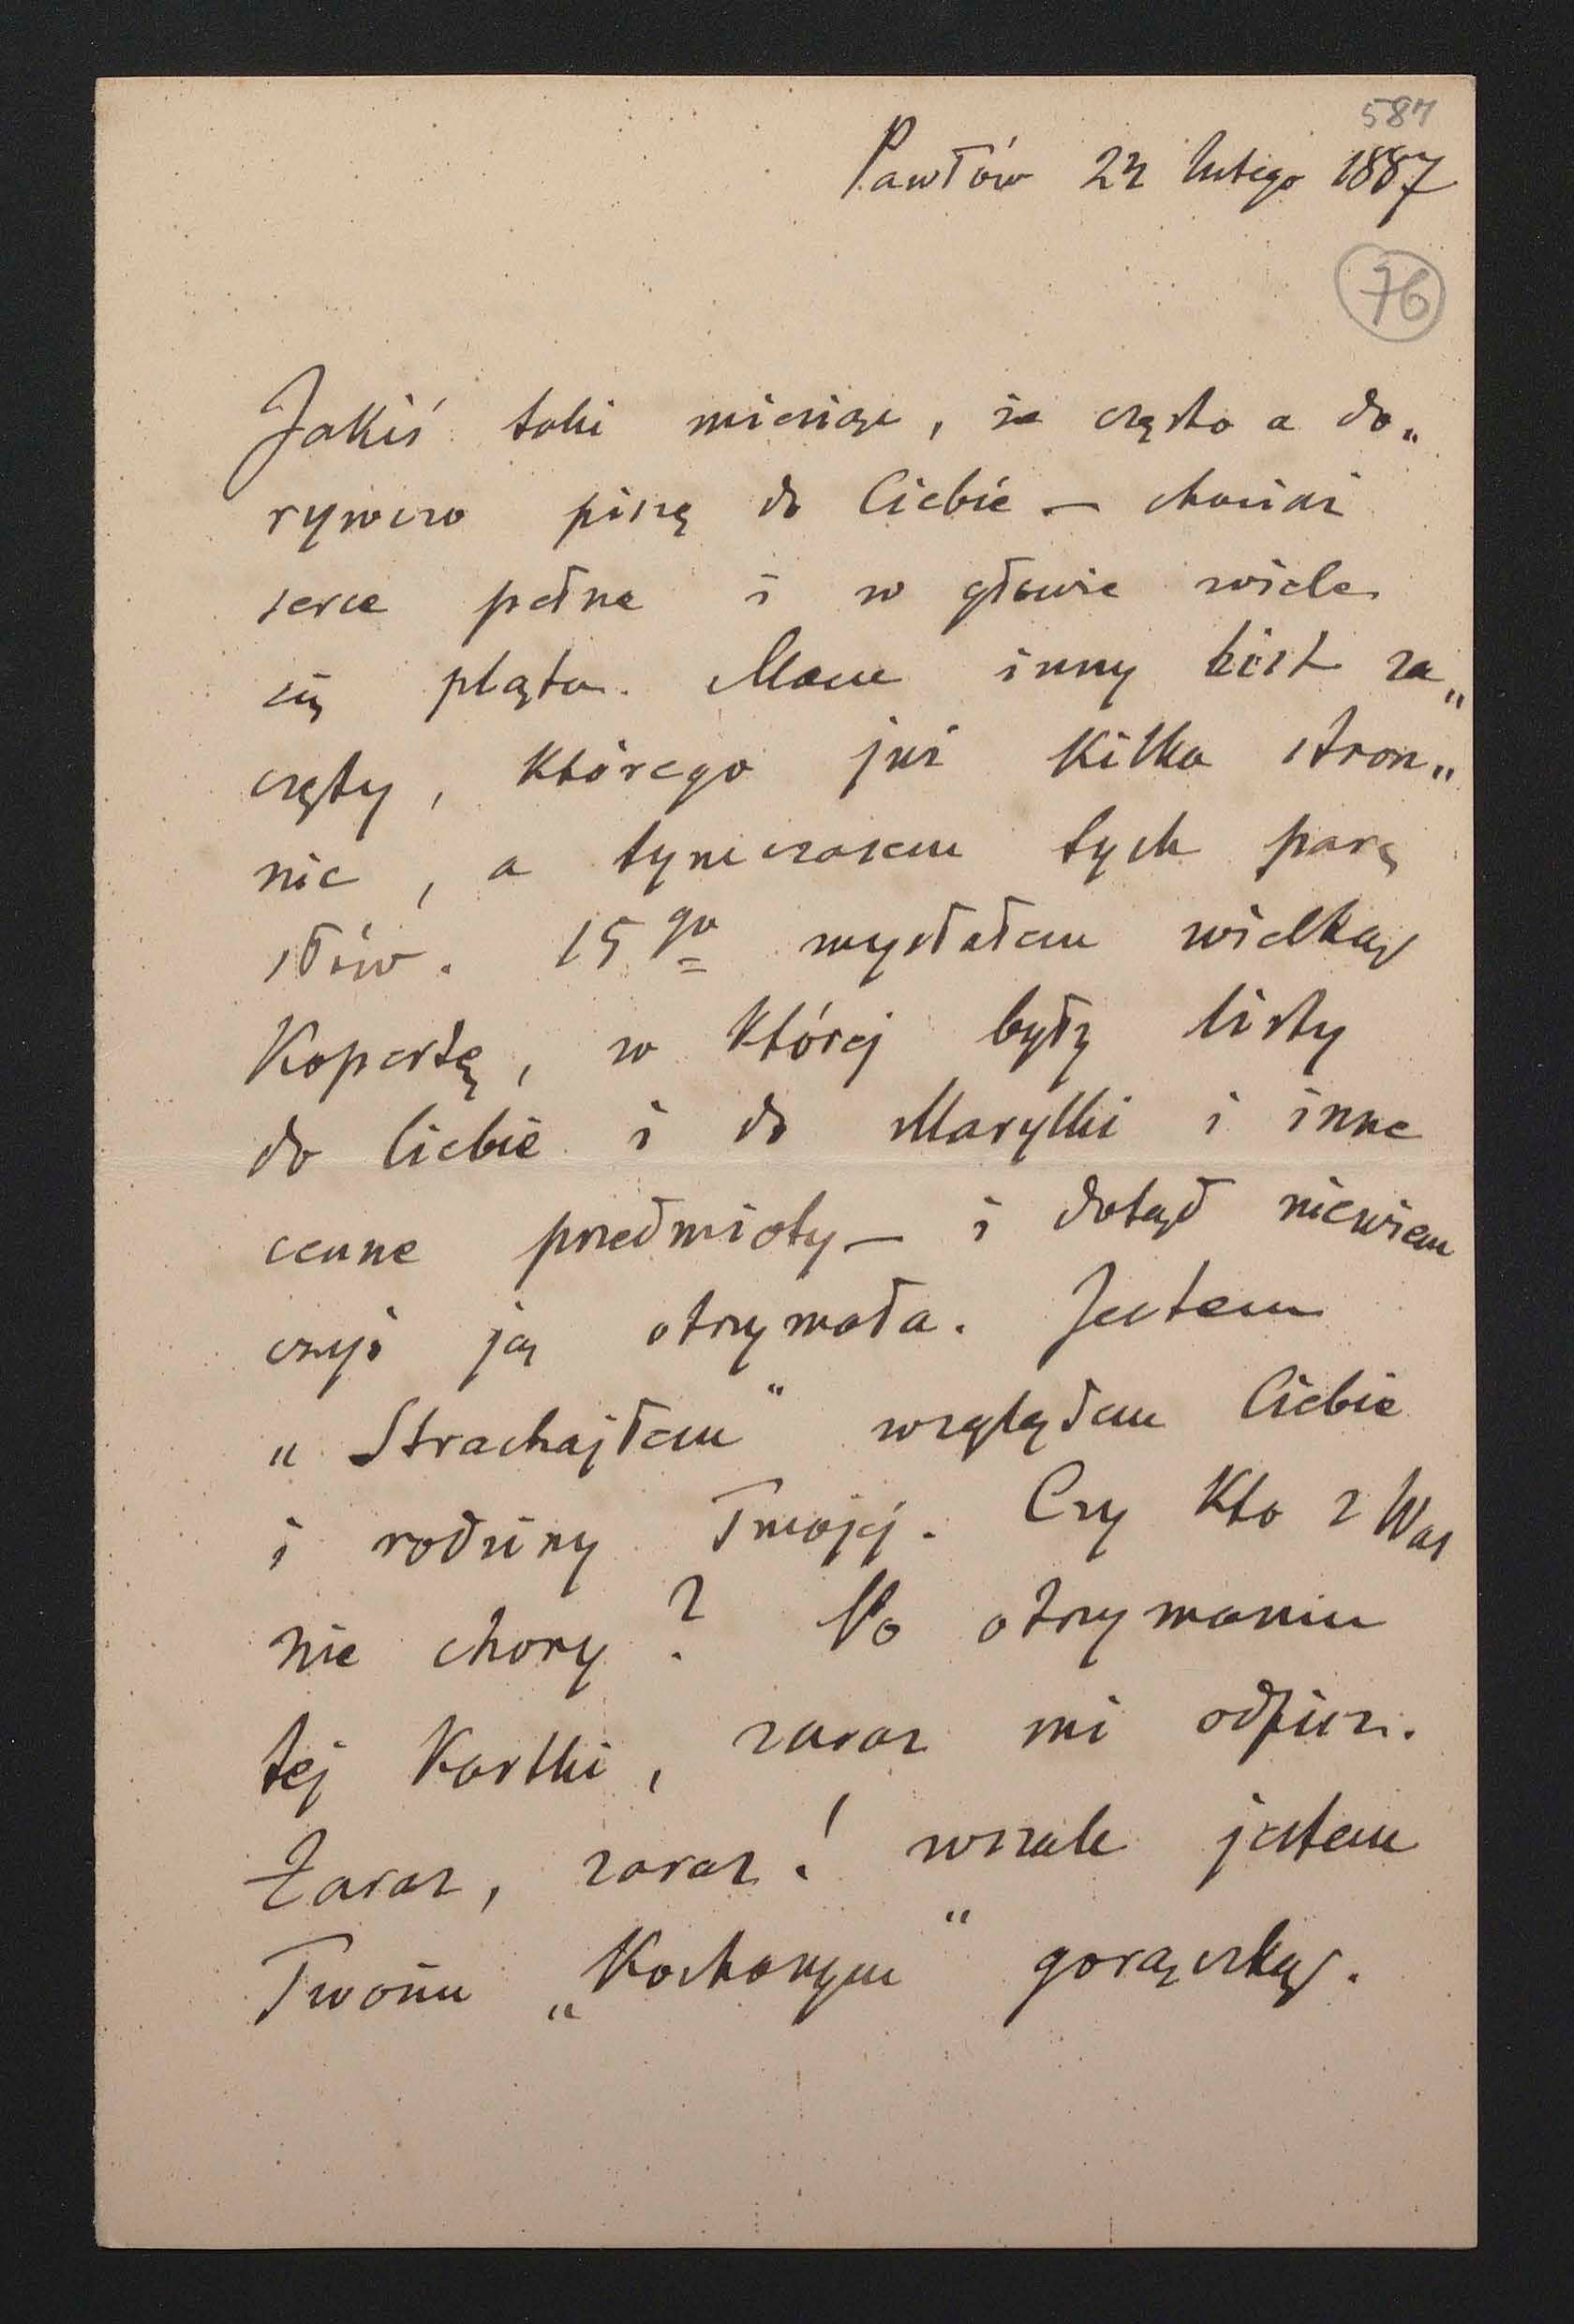 587
Pawłów 22 lutego 1887
76
Jakiś taki miesiąc, że często a do„
rywczo piszę do Ciebie – chociaż
serce pełne i w głowie wiele
się pląta. Mam inny list za„
częty, którego już kilka stron„
nic, a tymczasem tych parę
słów. 15go wysłałem wielką
Kopertę, w której były listy
do Ciebie i do Marylki i inne
cenne przedmioty – i dotąd niewiem
czyś ją otrzymała. Jestem
„Strachajłem" względem Ciebie
i rodziny Twojéj. Czy Kto z Was
nie chory? Po otrzymaniu
tej Kartki, zaraz mi odpisz.
Zaraz, zaraz! wszak jestem
Twoim „Kochanym" gorączką.